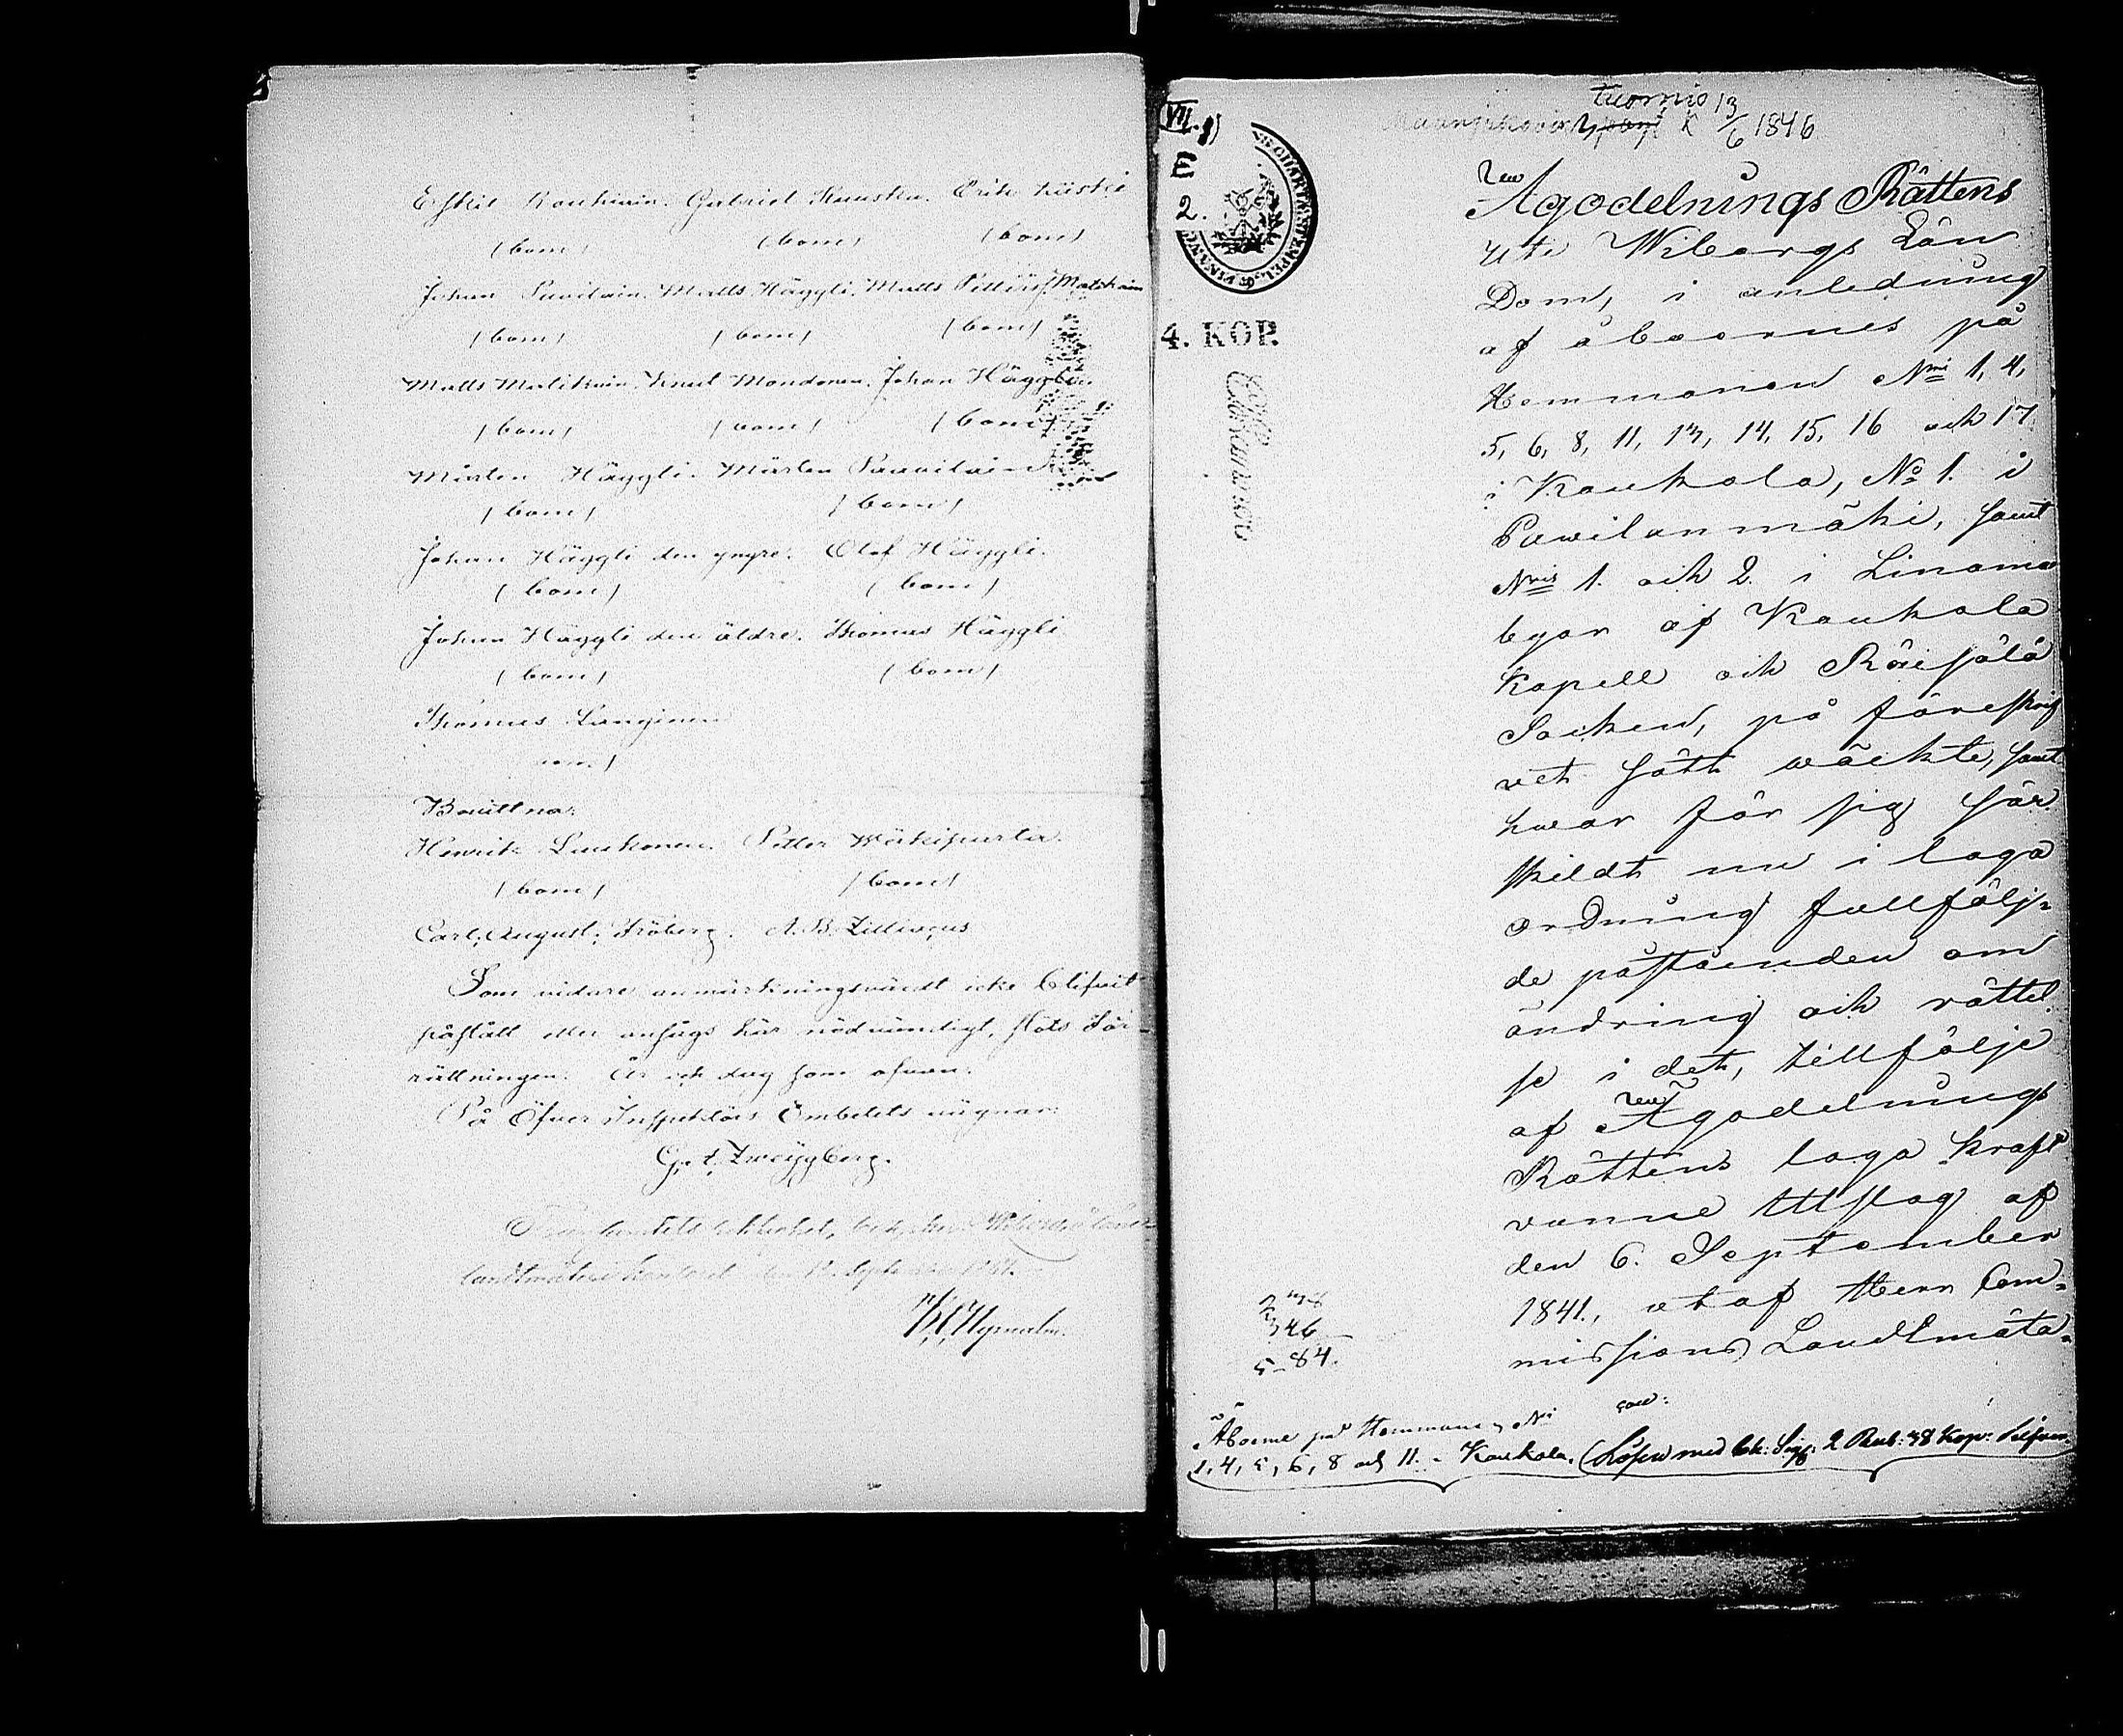 Eskil Koukiain. Gabriel Kuuska. Erik Kiiski
(bom) (bom) (bom)
Johan Paavilain. Matts Häggli. Matts Pettersf. Matikain
(bom) (bom) (bom)
Matts Matikain. Knut Mondonen. Johan Häggli
(bom) (bom) (bom)
Mårten Häggli. Mårten Paavilain
(bom) (bom)
Johan Häggli den yngre. Olof Häggli.
(bom) (bom)
Johan Häggli den äldre. Thomas Häggli
(bom) (bom)
Thomas
bom)
Henrik Laukonen. Petter
(bom) (bom)
Carl August Fröberg. A. B. Zilliacus
Som vidare anmärkningsvärdt icke blifvit
påstått eller ansågs här nödvändigt, slöts För-
rättningen. År och dag som ofvan.
På Öfver Inspektörs Embetets vägnar:
G. Zweygberg.
landtmäteri kontoret den 12. September
VII. 8)
E
2.
4. KOP.
tuomio 13/6 1846
Ägodelnings Rättens
uti Wiborgs Län
Dom, i anledning
af åboernes på
Hemmanen Nris 1, 4,
5, 6, 8, 11, 13, 14, 15, 16 och 17
i Kaukola, No 1. i
Pawilanmäki, samt
Nris 1. och 2. i Linama
byar af Kaukola
Kapell och Räisälä
Socken, på föreskrif
vet sätt wäckte, samt
hwar för sig sär
skildt nu i laga
ordning fullfölj-
de påståenden om
ändring och rättel
se i det, tillfölje
af Ägodelnings
Rättens laga kraft
vunne Utslag af
den 6. September
1841, utaf Herr Com-
missions Landtmäta-
2 38
3 46
5 - 84.
Åboerne på Hemmanen Nri
1, 4, 5, 6, 8 och 11. i Kaukola. (Lösen med 2 Rub: 38 Kop: Silfver.